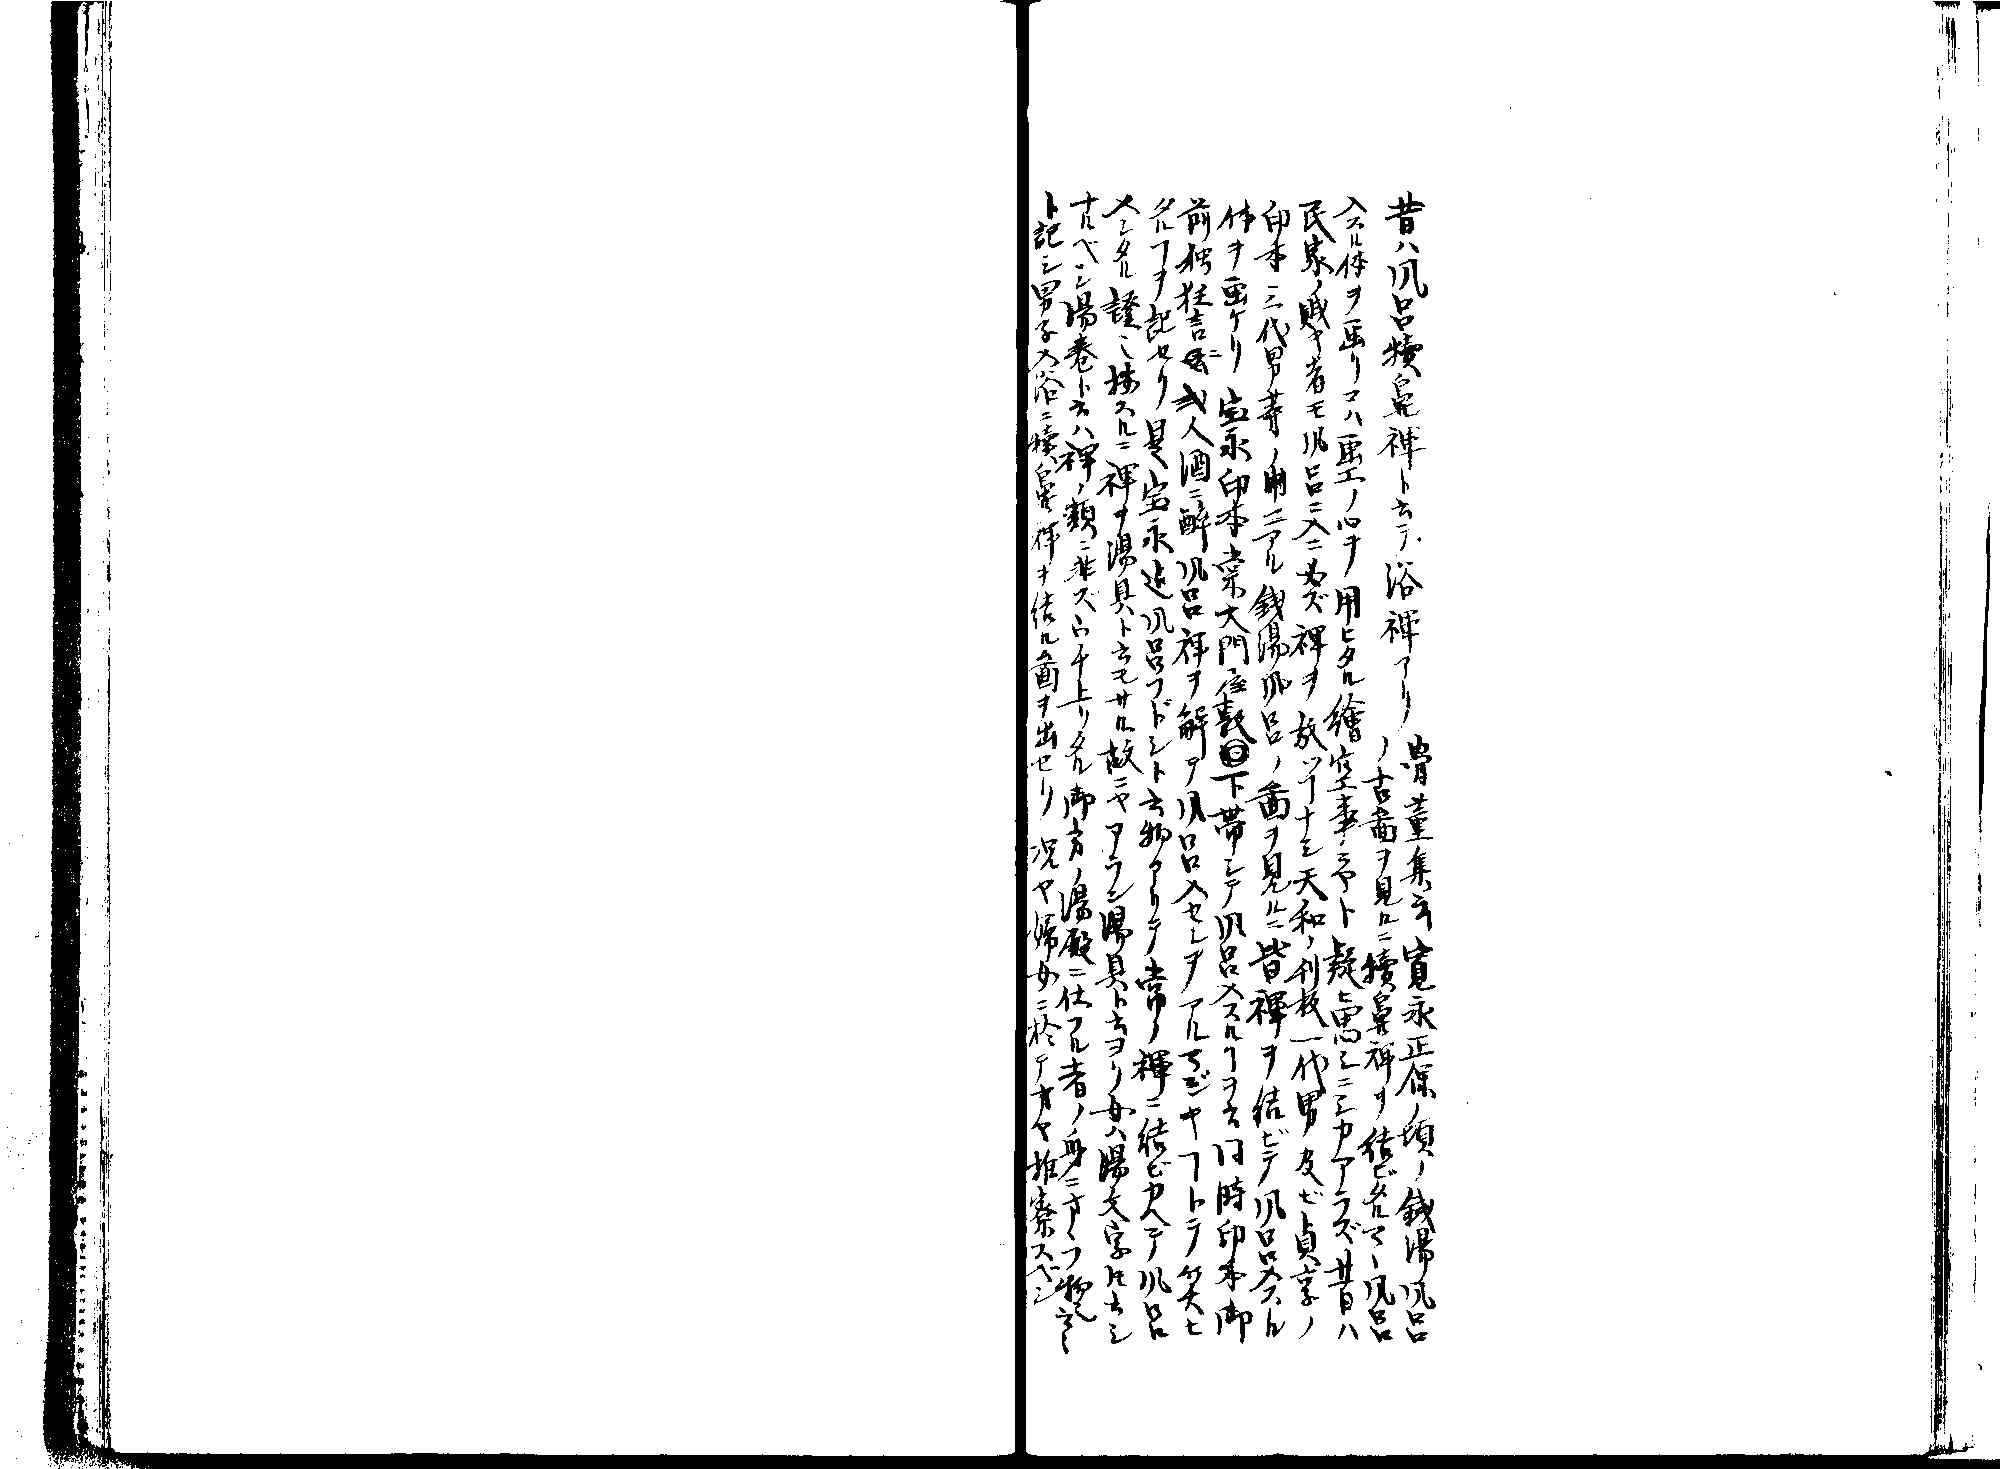 昔ハ風呂犢鼻褌ト云テ浴褌アリ
骨董集云寛永正保ノ頃ノ銭湯風呂
ノ古畫ヲ見ルニ犢鼻褌ヲ結ビタルマヽ風呂
入スル体ヲ画リコハ画工ノ心ヲ用ヒタル繪空事ニヤト疑ヒ思ヒシニシカアラズ昔ハ
民家ノ賎キ者モ風呂ニ入ニ必ズ褌ヲ放ツヿナシ天和ノ刊板一代男及ビ貞享ノ
印本三代男等ノ冊ニアル銭湯風呂ノ畫ヲ見ルニ皆褌ヲ結ビテ風呂入スル
体ヲ画ケリ宝永印本棠大門屋敷下帯シテ風呂入スルヿヲ云同時印本御
前独狂言ニ或人酒ニ酔風呂褌ヲ解テ風呂入セシヲアルマジキヿトテ笑ヒ
タルヿヲ記セリ是宝永迄風呂フドシト云物アリテ常ノ褌ニ結ビカヘテ風呂
入シタル證也按スルニ褌ヲ湯具ト云モサル故ニヤアラン湯具ト云ヨリ女ハ湯文字トモ云シ
ナルベシ湯巻ト云ハ褌ノ類ニ非ズウチ上リタル御方ノ湯殿ニ仕フル者ノ身ニマトフ物也云々
ト記シ男子入浴ニ犢鼻褌ヲ結ル畫ヲ出セリ況ヤ婦女ニ於テヲヤ推察スベシ